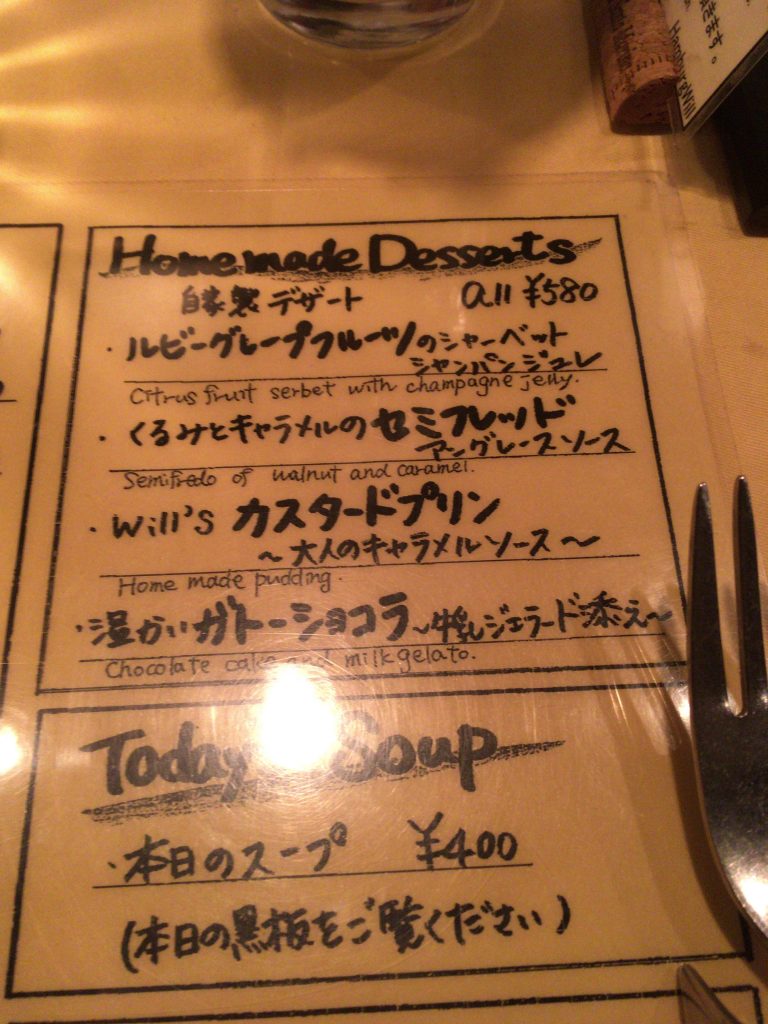 Home made Desserts
自家製デザート all ¥580
・ルビーグレープフルーツのシャーベット
シャンパンジュレ
Citrus fruit serbet with champagne jelly.
・くるみとキャラメルのセミフレッド
アングレースソース
Semifredo of walnut and caramel.
・Will's カスタードプリン
〜大人のキャラメルソース〜
Home made pudding.
・温かいガトーショコラ〜牛乳ジェラード添え〜
Chocolate cake and milk gelato.
Today Soup
・本日のスープ ¥400
(本日の黒板をご覧ください)